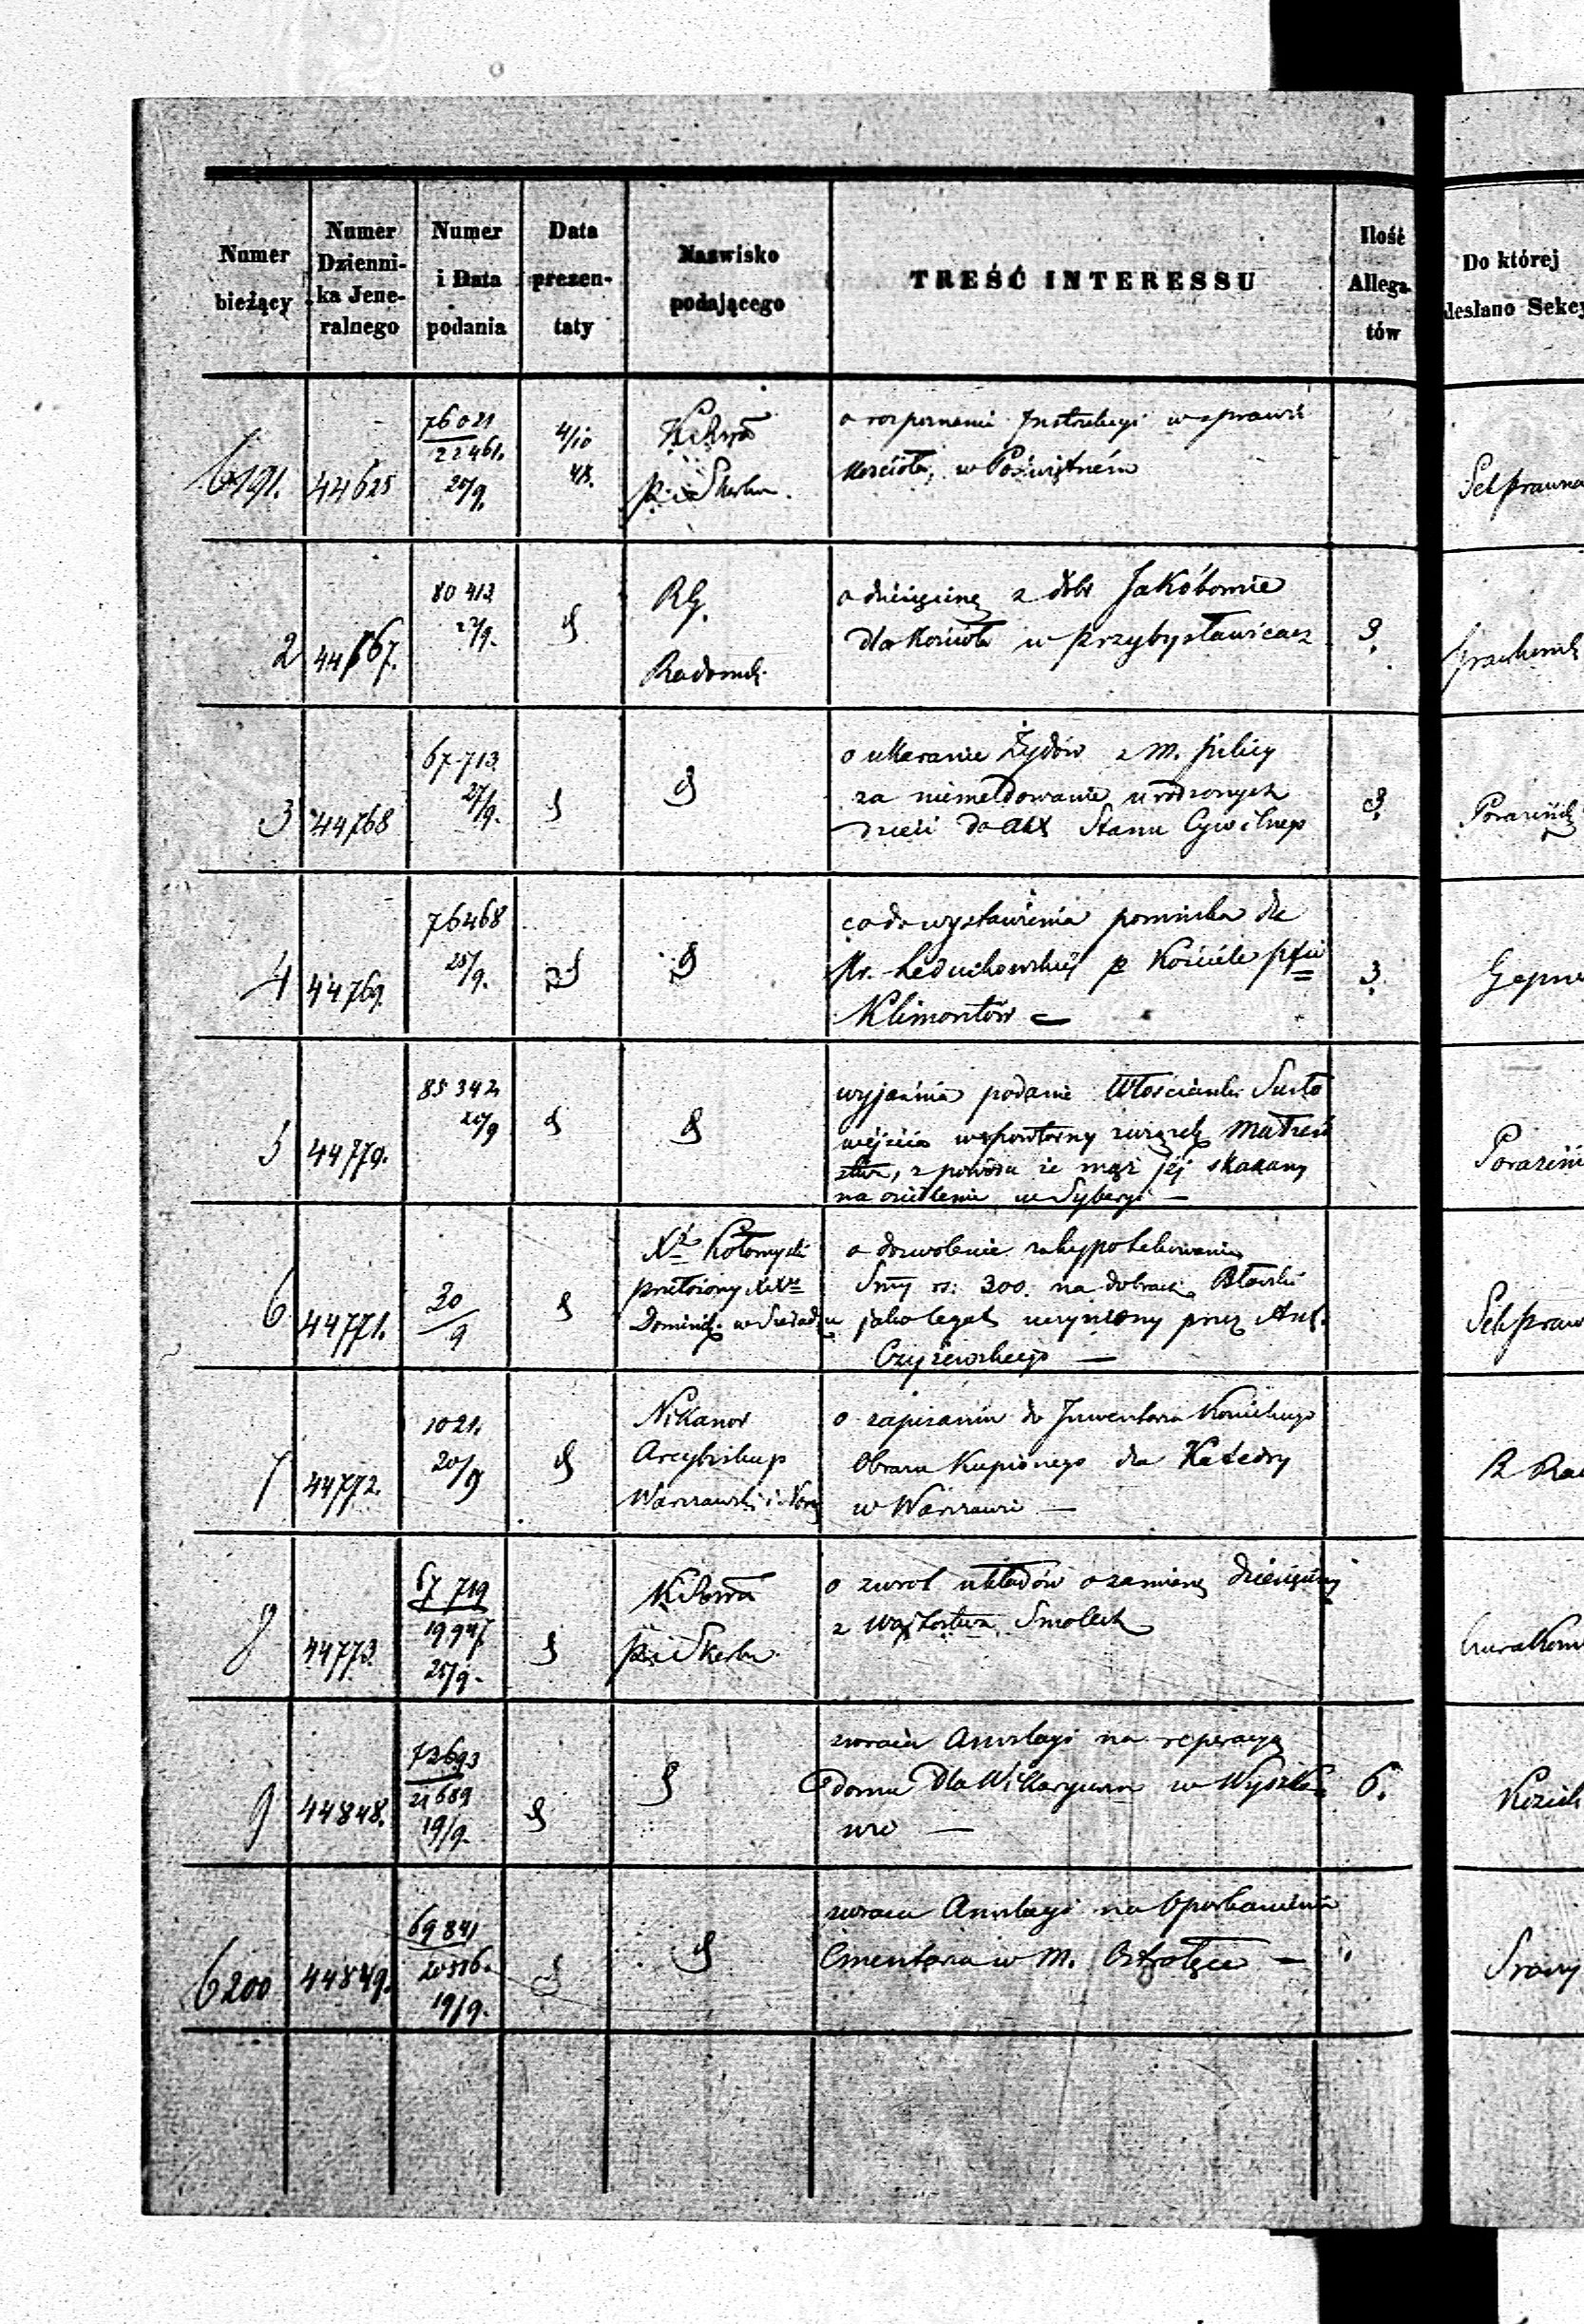 Numer bieżący
Numer Dziennika Jeneralnego
Numer i Data podania
Data prezentaty
Nazwisko podającego
TREŚĆ INTERESSU
Ilość Allegatów
Do której
desłano Sekcy
6191. 44625
76021
22461.
20/9.
4/10
P. i Skarbu.
w sprawie
Kościoła w Poświętném
Sek prawna
2 44767.
80 413
27/9.
RG.
Radomsk.
o dziesięcinę z dóbr Jakóbowie
dla Kościoła w Przybysławicach
3.
3 44768
67 713
27/9.
o ukaranie Żydów z M. Pilicy
za niemeldowanie urodzonych
dzieci do akt Stanu Cywilnego
3.
4 44769.
76468
25/9.
co do wystawienia pomnika dla
Hr. Leduchowskiéj
Klimontów —
3.
5 44770.
85 342
20/9
wyjaśnia podanie Włościanki
wejścia w powtórny związek Małżeń
stwa, z powodu że mąż jéj skazany
na osiedlenie w Syberyi —
6 44771.
30/9
Xd. Kołomyski
przełożony XXów
Dominik. w Sieradzu
o dozwolenie zahypotekowania
Smy rs: 300. na dobrach
jako legat uczyniony przez Ant.
Czyżewskiego —
Sek praw
7 44772.
1021.
20/9
Nikanor
Arcybiskup
Warszawski i Now
o zapisanie do Inwentarza
Obrazu Kupionego dla Katedry
w Warszawie —
8 44773.
67 719
19947
25/9.
P. i Skarbu
o zwrot układów o zamianę dziesięciny
z Wójtostwa Smolech
9 44848.
72693
21689
19/9.
zwraca Anszlagi na reperacyą
domu dla Wikaryusza w Wyszko
wie —
6.
6200 44849.
69 841
20576.
19/9.
zwraca Anszlagi na Oparkanienie
Cmentarza w M. Ostrołęce —